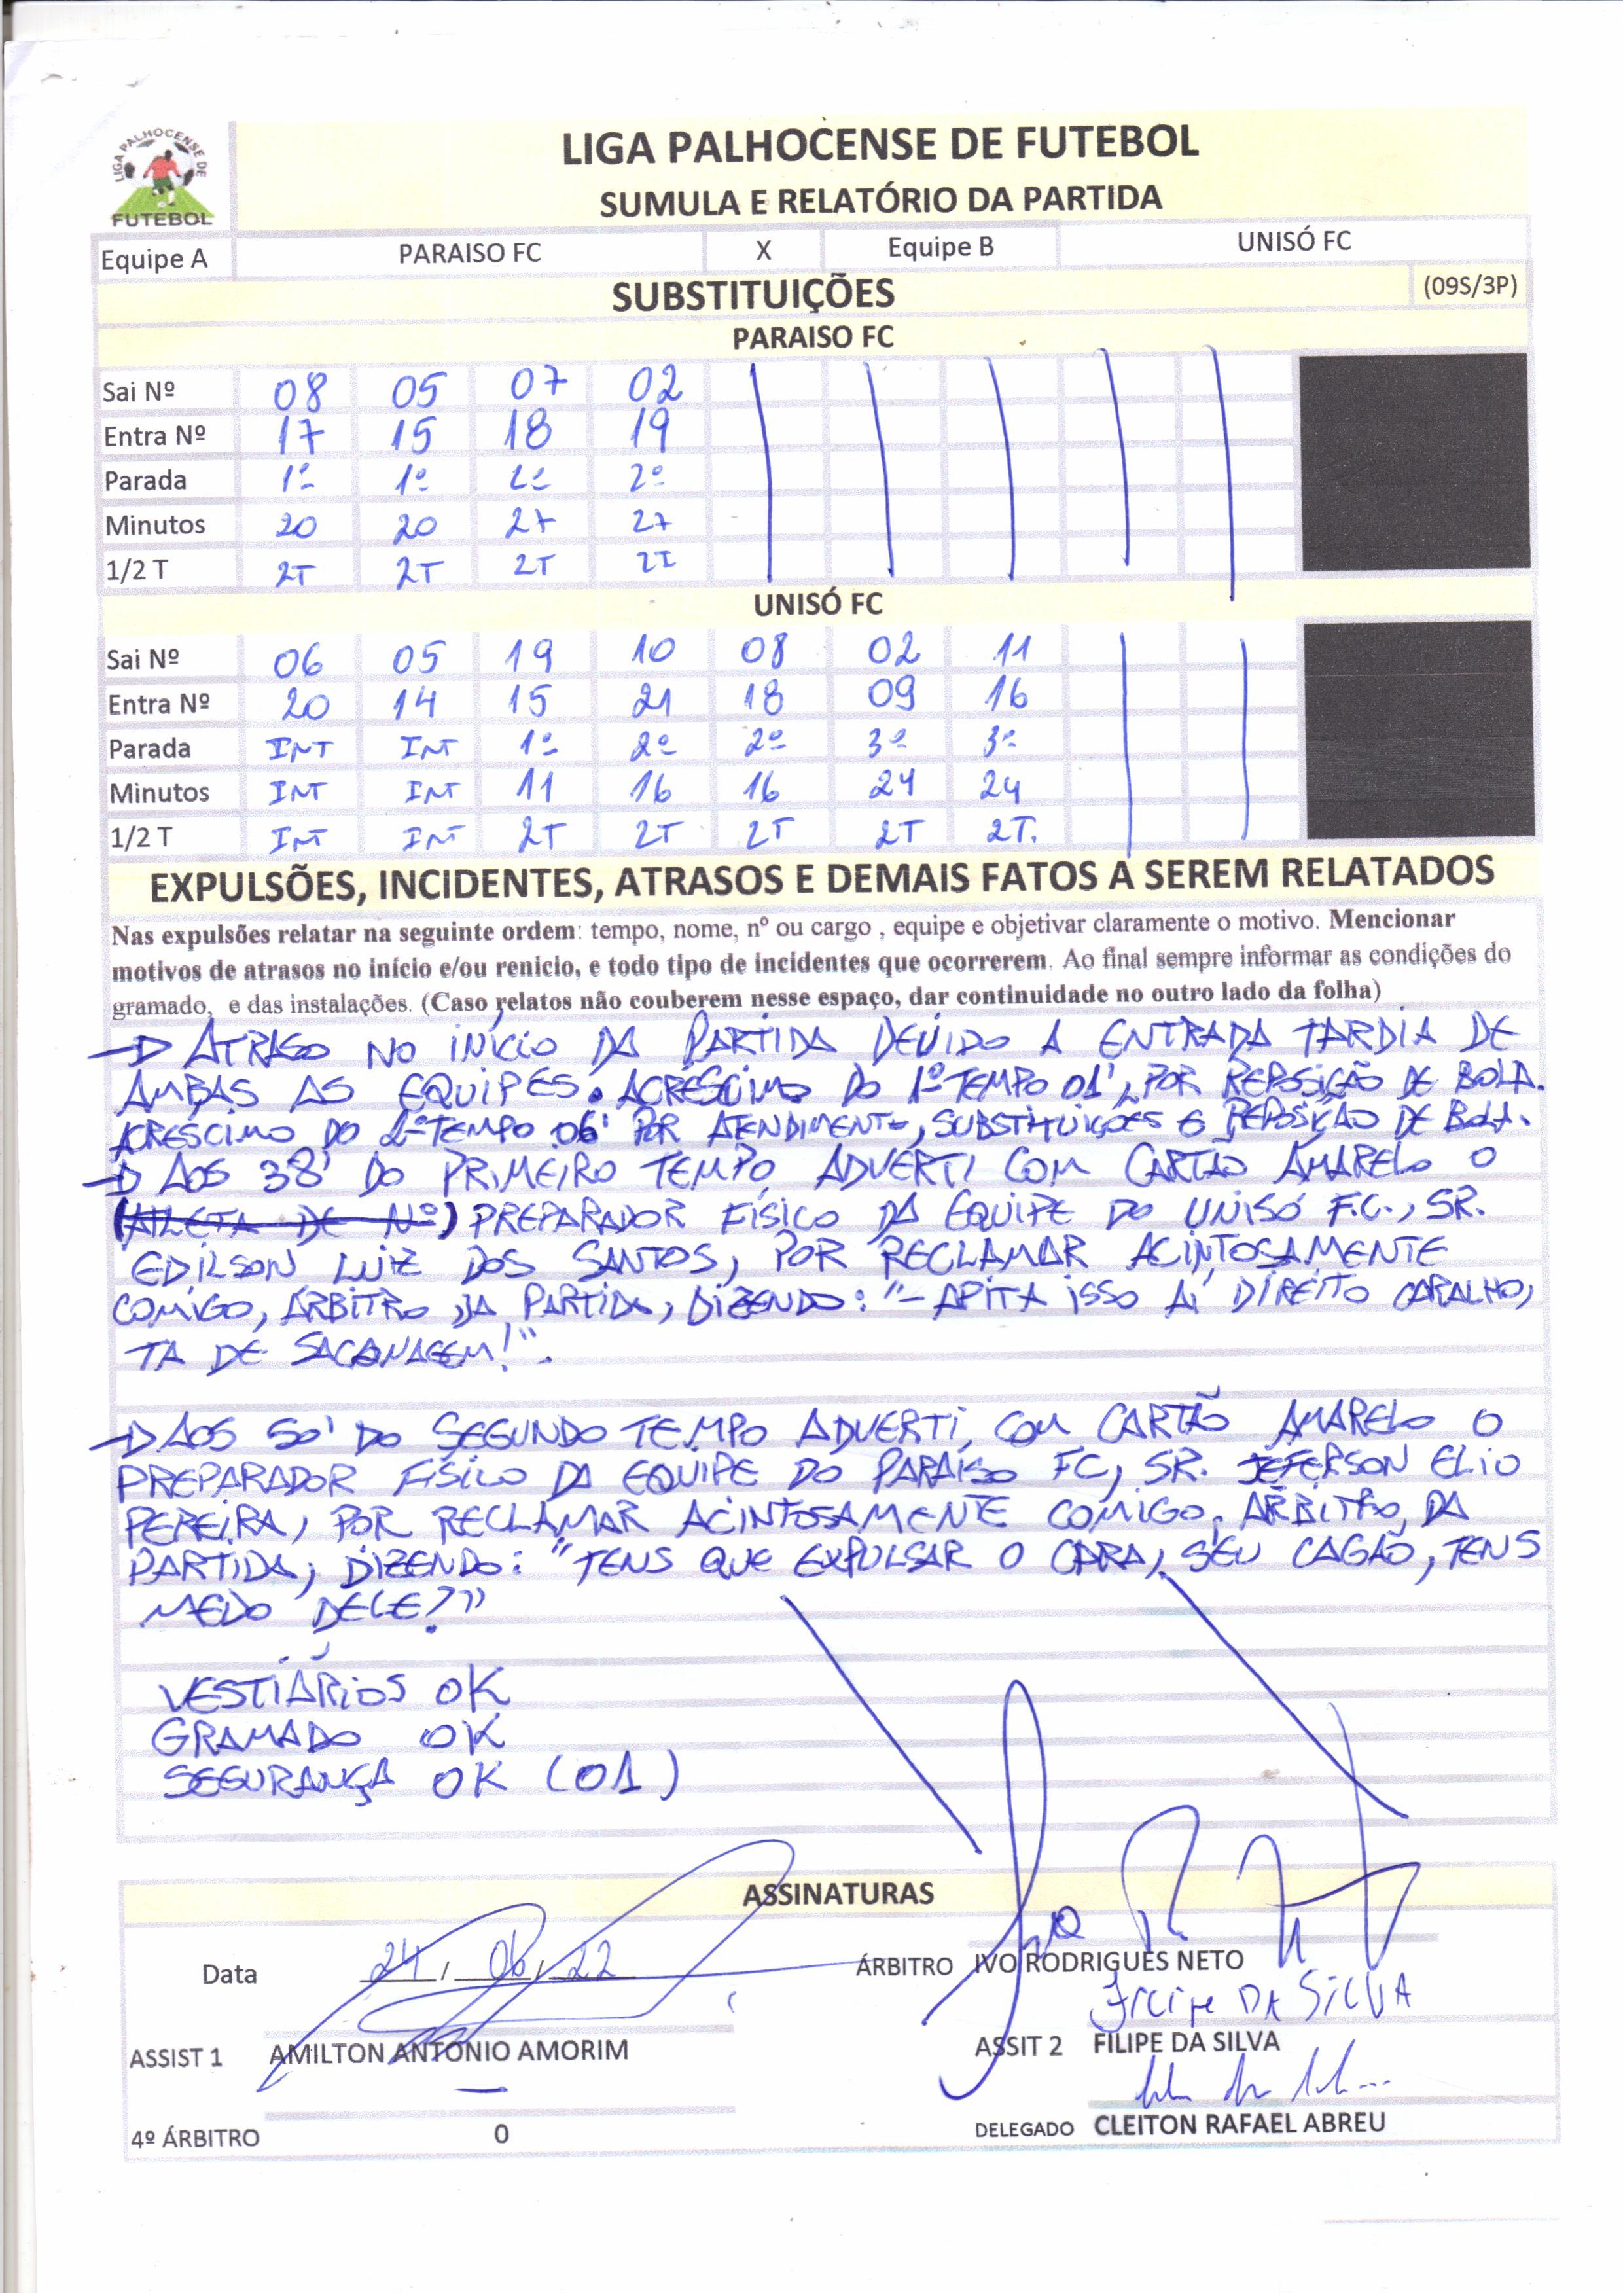 LIGA PALHOCENSE DE FUTEBOL
LIGA PALHOCENSE DE FUTEBOL
SUMULA E RELATÓRIO DA PARTIDA
Equipe A PARAISO FC X Equipe B UNISÓ FC
SUBSTITUIÇÕES (09S/3P)
PARAISO FC
Sai Nº 08 05 07 02
Entra Nº 17 15 18 19
Parada 1º 1º 2º 2º
Minutos 20 20 27 27
1/2 T 2T 2T 2T 2T
UNISÓ FC
Sai Nº 06 05 19 10 08 02 11
Entra Nº 20 14 15 21 18 09 16
Parada INT INT 1º 2º 2º 3º 3º
Minutos INT INT 11 16 16 24 24
1/2 T INT INT 2T 2T 2T 2T 2T.
EXPULSÕES, INCIDENTES, ATRASOS E DEMAIS FATOS A SEREM RELATADOS
Nas expulsões relatar na seguinte ordem: tempo, nome, nº ou cargo , equipe e objetivar claramente o motivo. Mencionar
motivos de atrasos no início e/ou renicio, e todo tipo de incidentes que ocorrerem. Ao final sempre informar as condições do
gramado, e das instalações. (Caso relatos não couberem nesse espaço, dar continuidade no outro lado da folha)
→ ATRASO NO INÍCIO DA PARTIDA DEVIDO A ENTRADA TARDIA DE
AMBAS AS EQUIPES. ACRÉSCIMO DO 1º TEMPO 01', POR REPOSIÇÃO DE BOLA.
ACRÉSCIMO DO 2º TEMPO 06' POR ATENDIMENTO, SUBSTITUIÇÕES E REPOSIÇÃO DE BOLA.
→ AOS 38' DO PRIMEIRO TEMPO ADVERTI COM CARTÃO AMARELO O
(ATLETA DE Nº) PREPARADOR FÍSICO DA EQUIPE DO UNISÓ F.C., SR.
EDILSON LUIZ DOS SANTOS, POR RECLAMAR ACINTOSAMENTE
COMIGO, ÁRBITRO DA PARTIDA, DIZENDO: "- APITA ISSO AÍ DIREITO CARALHO,
TA DE SACANAGEM!".
→ AOS 50' DO SEGUNDO TEMPO ADVERTI COM CARTÃO AMARELO O
PREPARADOR FÍSICO DA EQUIPE DO PARAÍSO FC, SR. JEFERSON ELIO
PEREIRA, POR RECLAMAR ACINTOSAMENTE COMIGO, ÁRBITRO DA
PARTIDA, DIZENDO: "TENS QUE EXPULSAR O CARA, SEU CAGÃO, TENS
MEDO DELE?"
VESTIÁRIOS OK
GRAMADO OK
SEGURANÇA OK (01)
ASSINATURAS
Data 24/06/22 ÁRBITRO IVO RODRIGUES NETO
FILIPE DA SILVA
ASSIST 1 AMILTON ANTONIO AMORIM ASSIT 2 FILIPE DA SILVA
4º ÁRBITRO 0 DELEGADO CLEITON RAFAEL ABREU